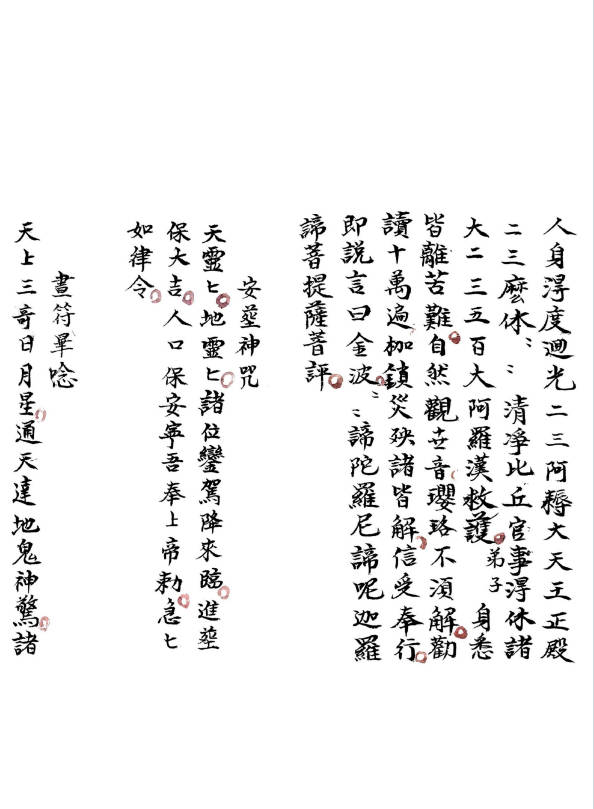 人身淂度廻光二三阿耨大天王正殿
二三麽休〻〻清凈比丘官事淂休諸
大二三五百大阿羅漢救護弟子身悉
皆離苦難自然觀世音瓔珞不湏解勸
讀十萬遍枷鎖災殃諸皆解信受奉行
即説言曰金波〻〻諦陀羅尼諦呢迦羅
諦菩提薩菩訶
安㙓神咒
天靈匕地靈匕諸位鑾駕降來臨進㙓
保大吉人口保安寧吾奉上帝勅急匕
如律令
畫符畢唸
天上三奇日月星通天達地鬼神驚諸